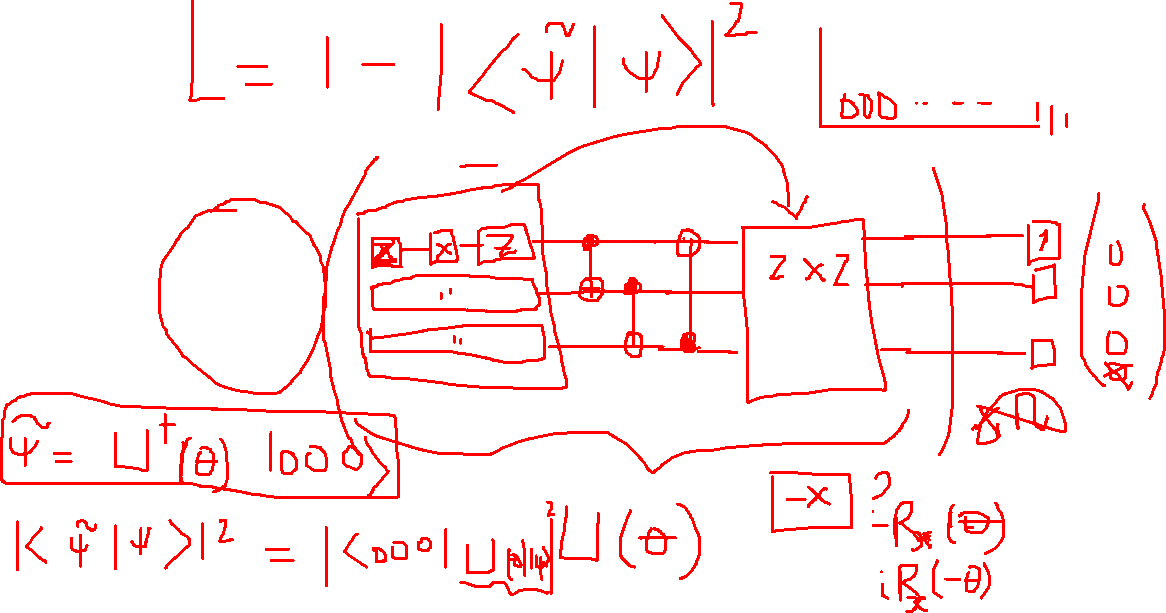 L = 1 - |<ψ̃|ψ>|²
000 ----
Z X Z
"
"
Z X Z
1
0
0
0
ψ̃ = U†(θ) |000>
-X
|<ψ̃|ψ>|² = |<000|U(θ)|ψ>|² U(θ)
-Rx(θ)
iRx(-θ)